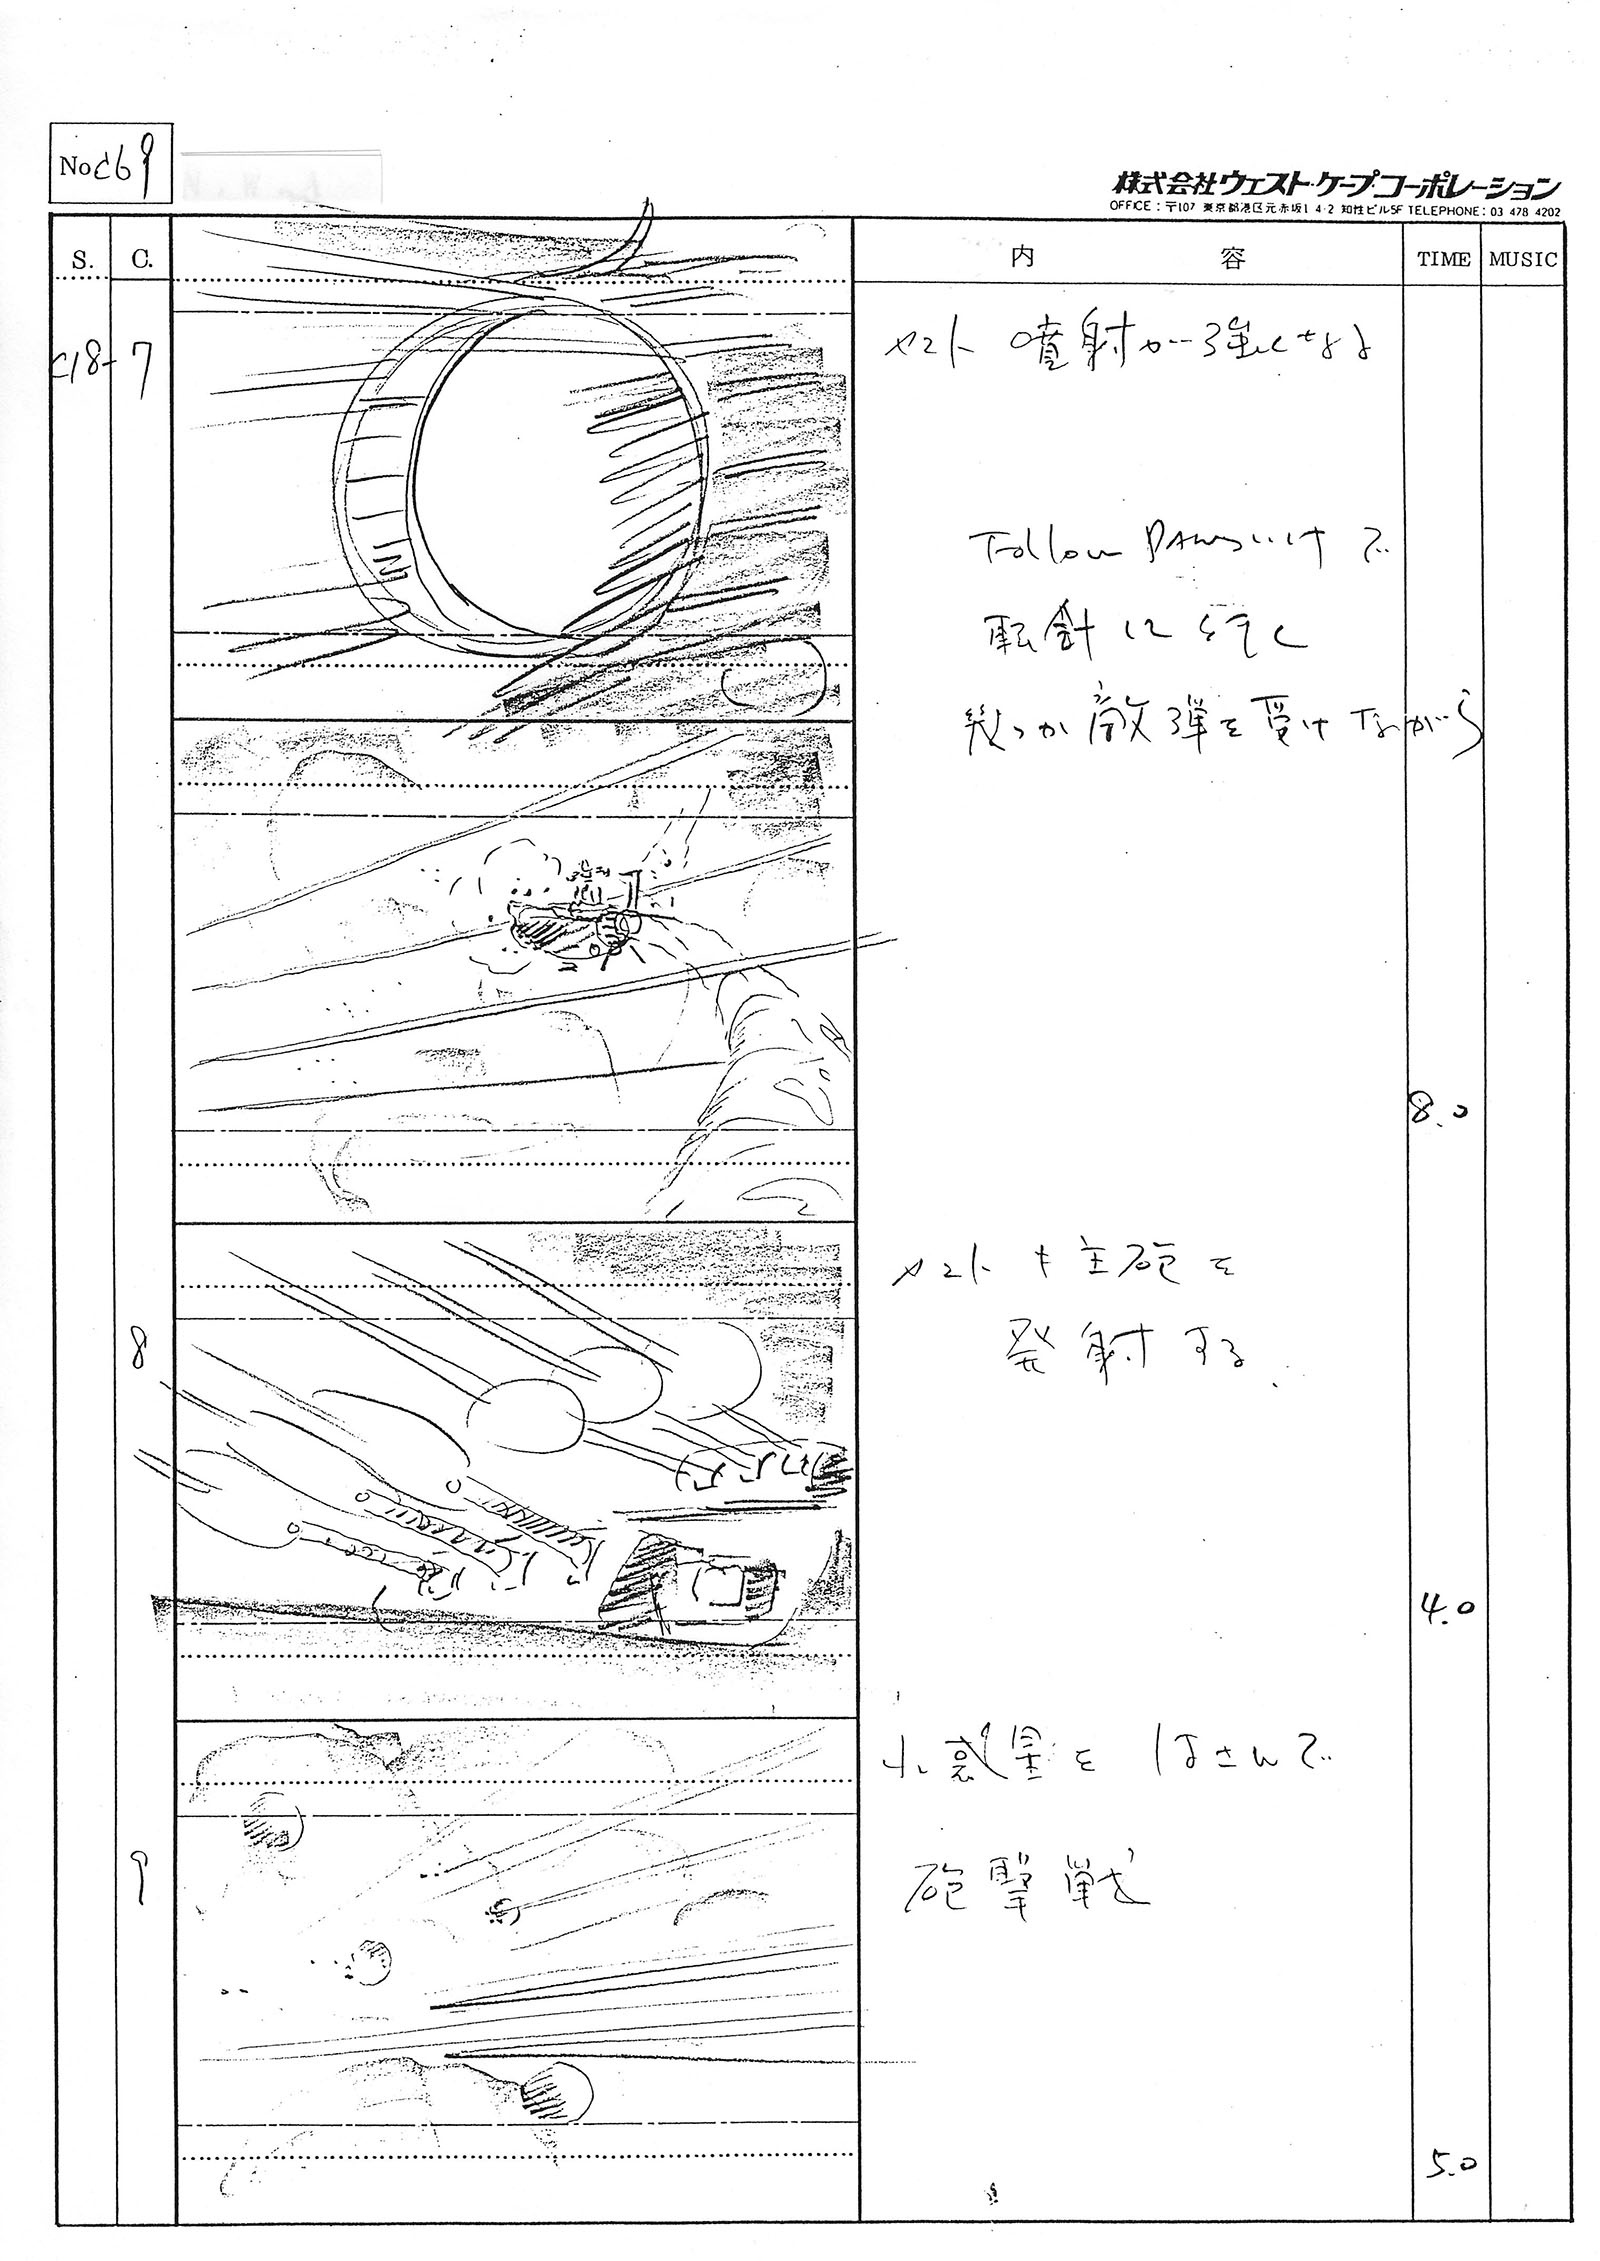 No c69
株式会社ウエスト・ケープ・コーポレーション
OFFICE：〒107 東京都港区元赤坂1 4-2 知性ビル5F TELEPHONE：03 478 4202
S. C. 内容 TIME MUSIC
c18-7 ヤマト 噴射が強くなる
Follow
転針に続く
幾つか敵弾を受けながら
8.0
8 ヤマトも主砲を
発射する
4.0
9 小惑星をはさんで
砲撃戦
5.0